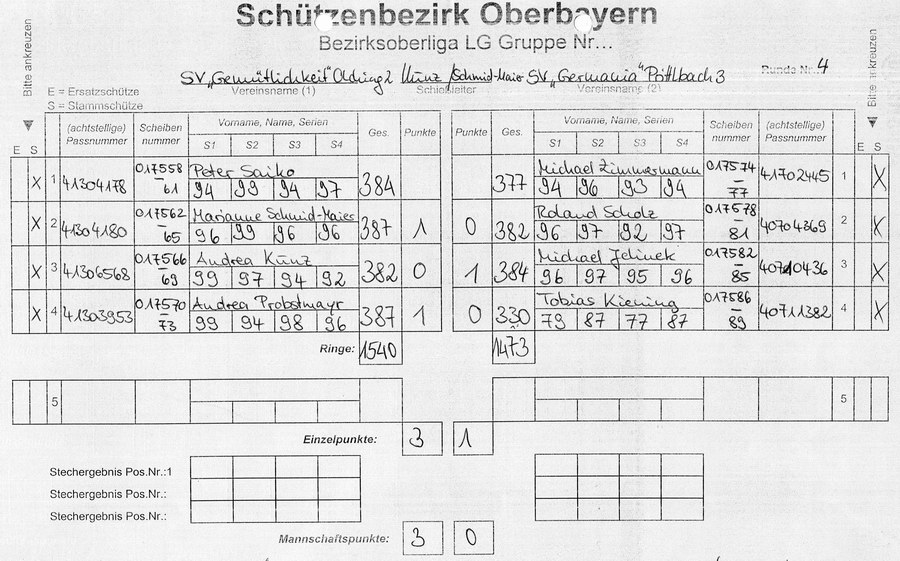 Schützenbezirk Oberbayern
Bezirksoberliga LG Gruppe Nr...
Bitte ankreuzen
Bitte ankreuzen
SV „Gemütlichkeit" Olching 2 Kunz / Schmid-Maier SV „Germania" Prittlbach 3 Runde Nr. 4
E = Ersatzschütze Vereinsname (1) Schießleiter Vereinsname (2)
S = Stammschütze
E S (achtstellige) Passnummer Scheiben nummer Vorname, Name, Serien S1 S2 S3 S4 Ges. Punkte Punkte Ges. Vorname, Name, Serien S1 S2 S3 S4 Scheiben nummer (achtstellige) Passnummer E S
X 1 41304178 017558 – 61 Peter Saiko 94 99 94 97 384 377 Michael Zimmermann 94 96 93 94 017574 – 77 41702445 1 X
X 2 41304180 017562 – 65 Marianne Schmid-Maier 96 99 96 96 387 1 0 382 Roland Scholz 96 97 92 97 017578 – 81 40704369 2 X
X 3 41306568 017566 – 69 Andrea Kunz 99 97 94 92 382 0 1 384 Michael Jelinek 96 97 95 96 017582 – 85 40710436 3 X
X 4 41303953 017570 – 73 Andrea Probstmayr 99 94 98 96 387 1 0 330 Tobias Kiening 79 87 77 87 017586 – 89 40711382 4 X
Ringe: 1540 1473
5 5
Einzelpunkte: 3 1
Stechergebnis Pos.Nr.:1
Stechergebnis Pos.Nr.:
Stechergebnis Pos.Nr.:
Mannschaftspunkte: 3 0